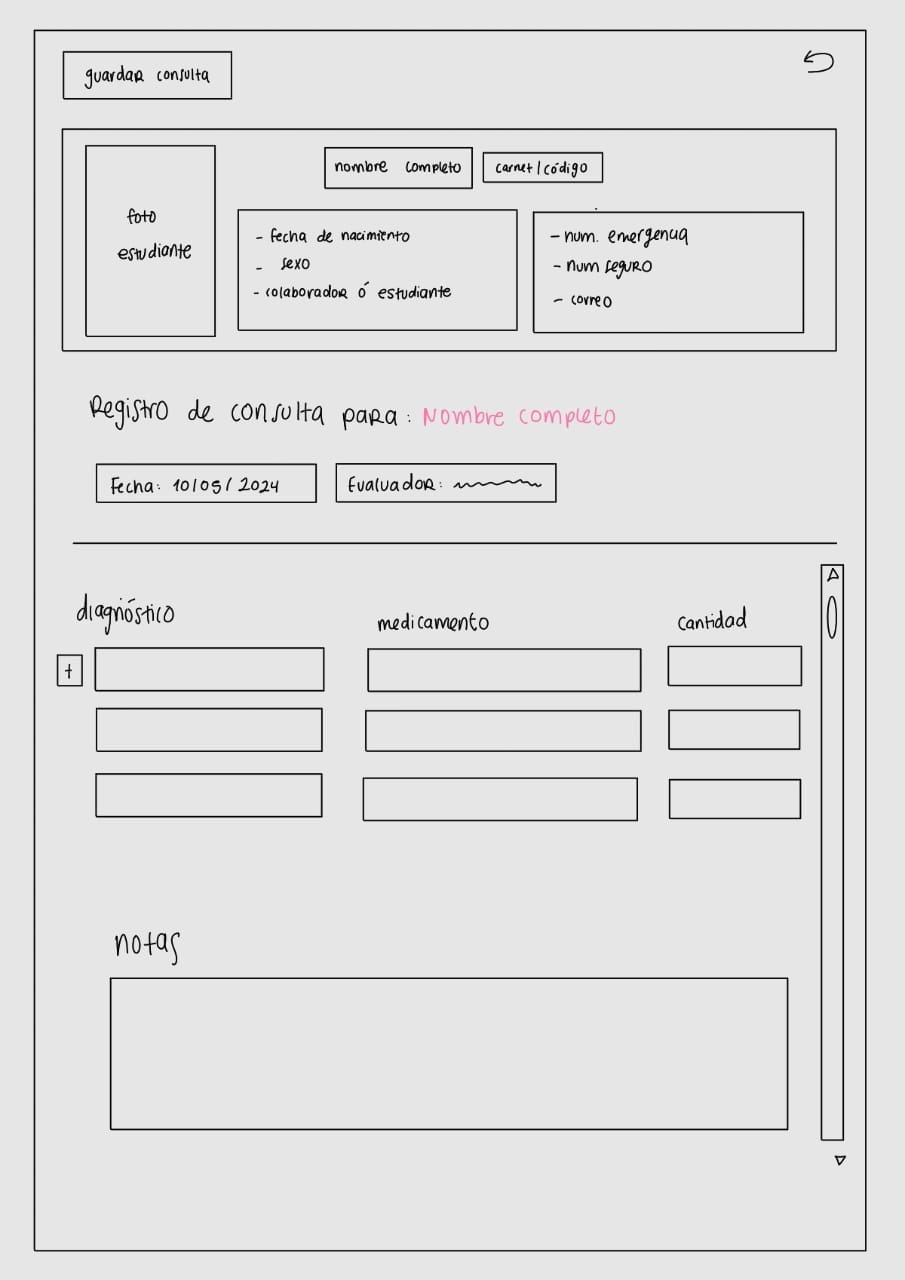 guardar consulta
nombre completo
carnet/código
foto
estudiante
- fecha de nacimiento
- sexo
- colaborador ó estudiante
- num. emergencia
- num seguro
- correo
Registro de consulta para: Nombre completo
Fecha: 10/05/2024
Evaluador:
diagnóstico
medicamento
cantidad
+
notas